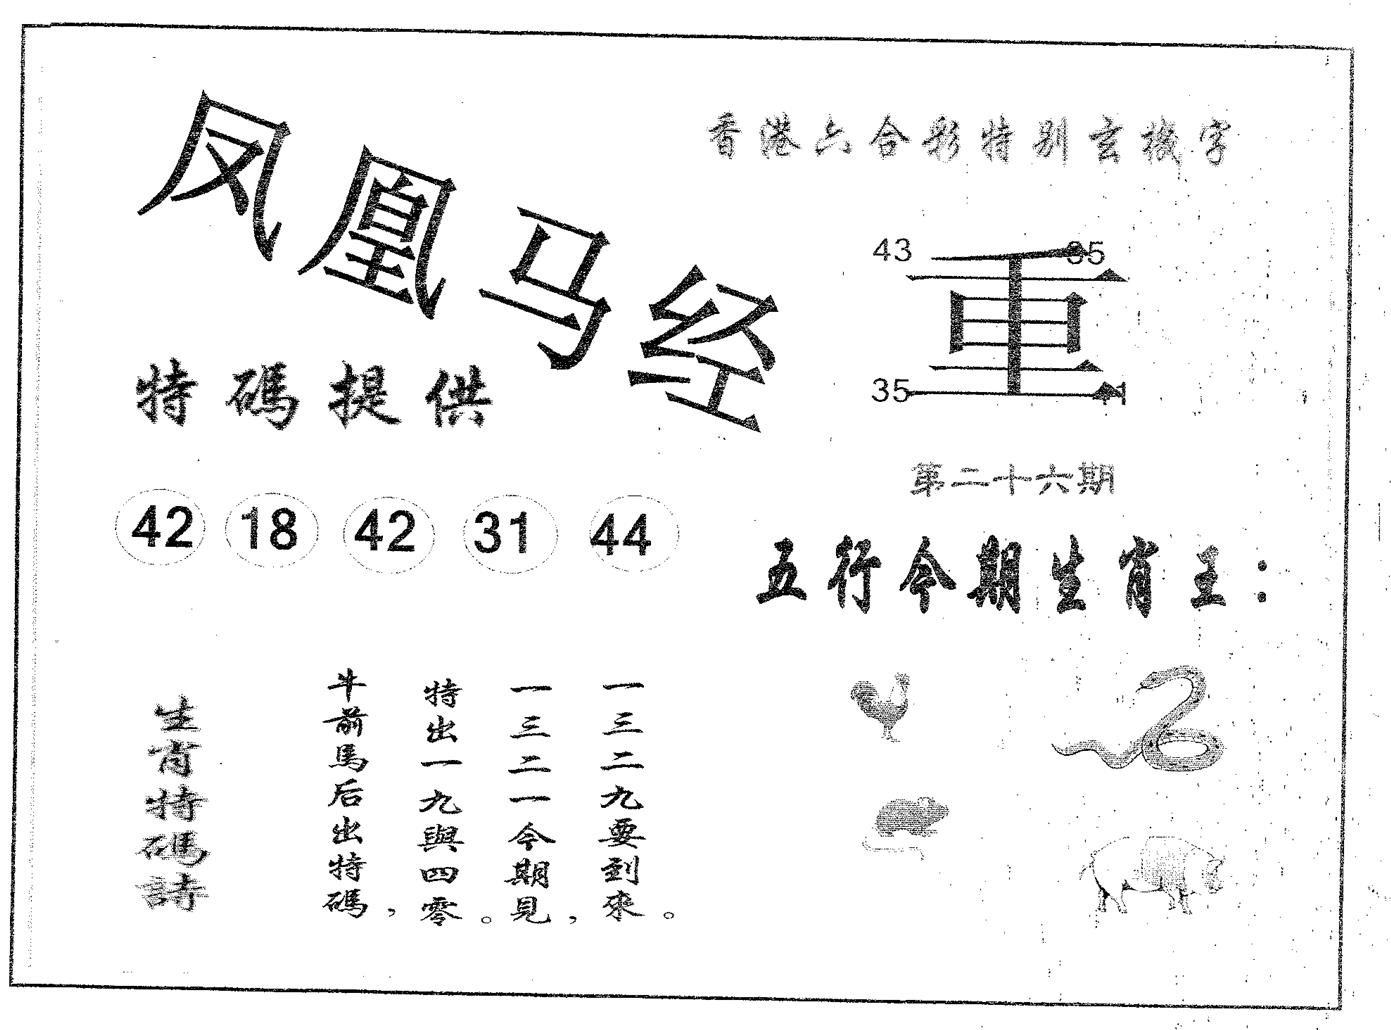 凤凰马经
香港六合彩特别玄機字
43
35
重
35
特碼提供
42 18 42 31 44
第二十六期
五行今期生肖王：
生肖特碼詩
牛前馬后出特碼，
特出一九與四零。
一三二一今期見，
一三二九要到來。